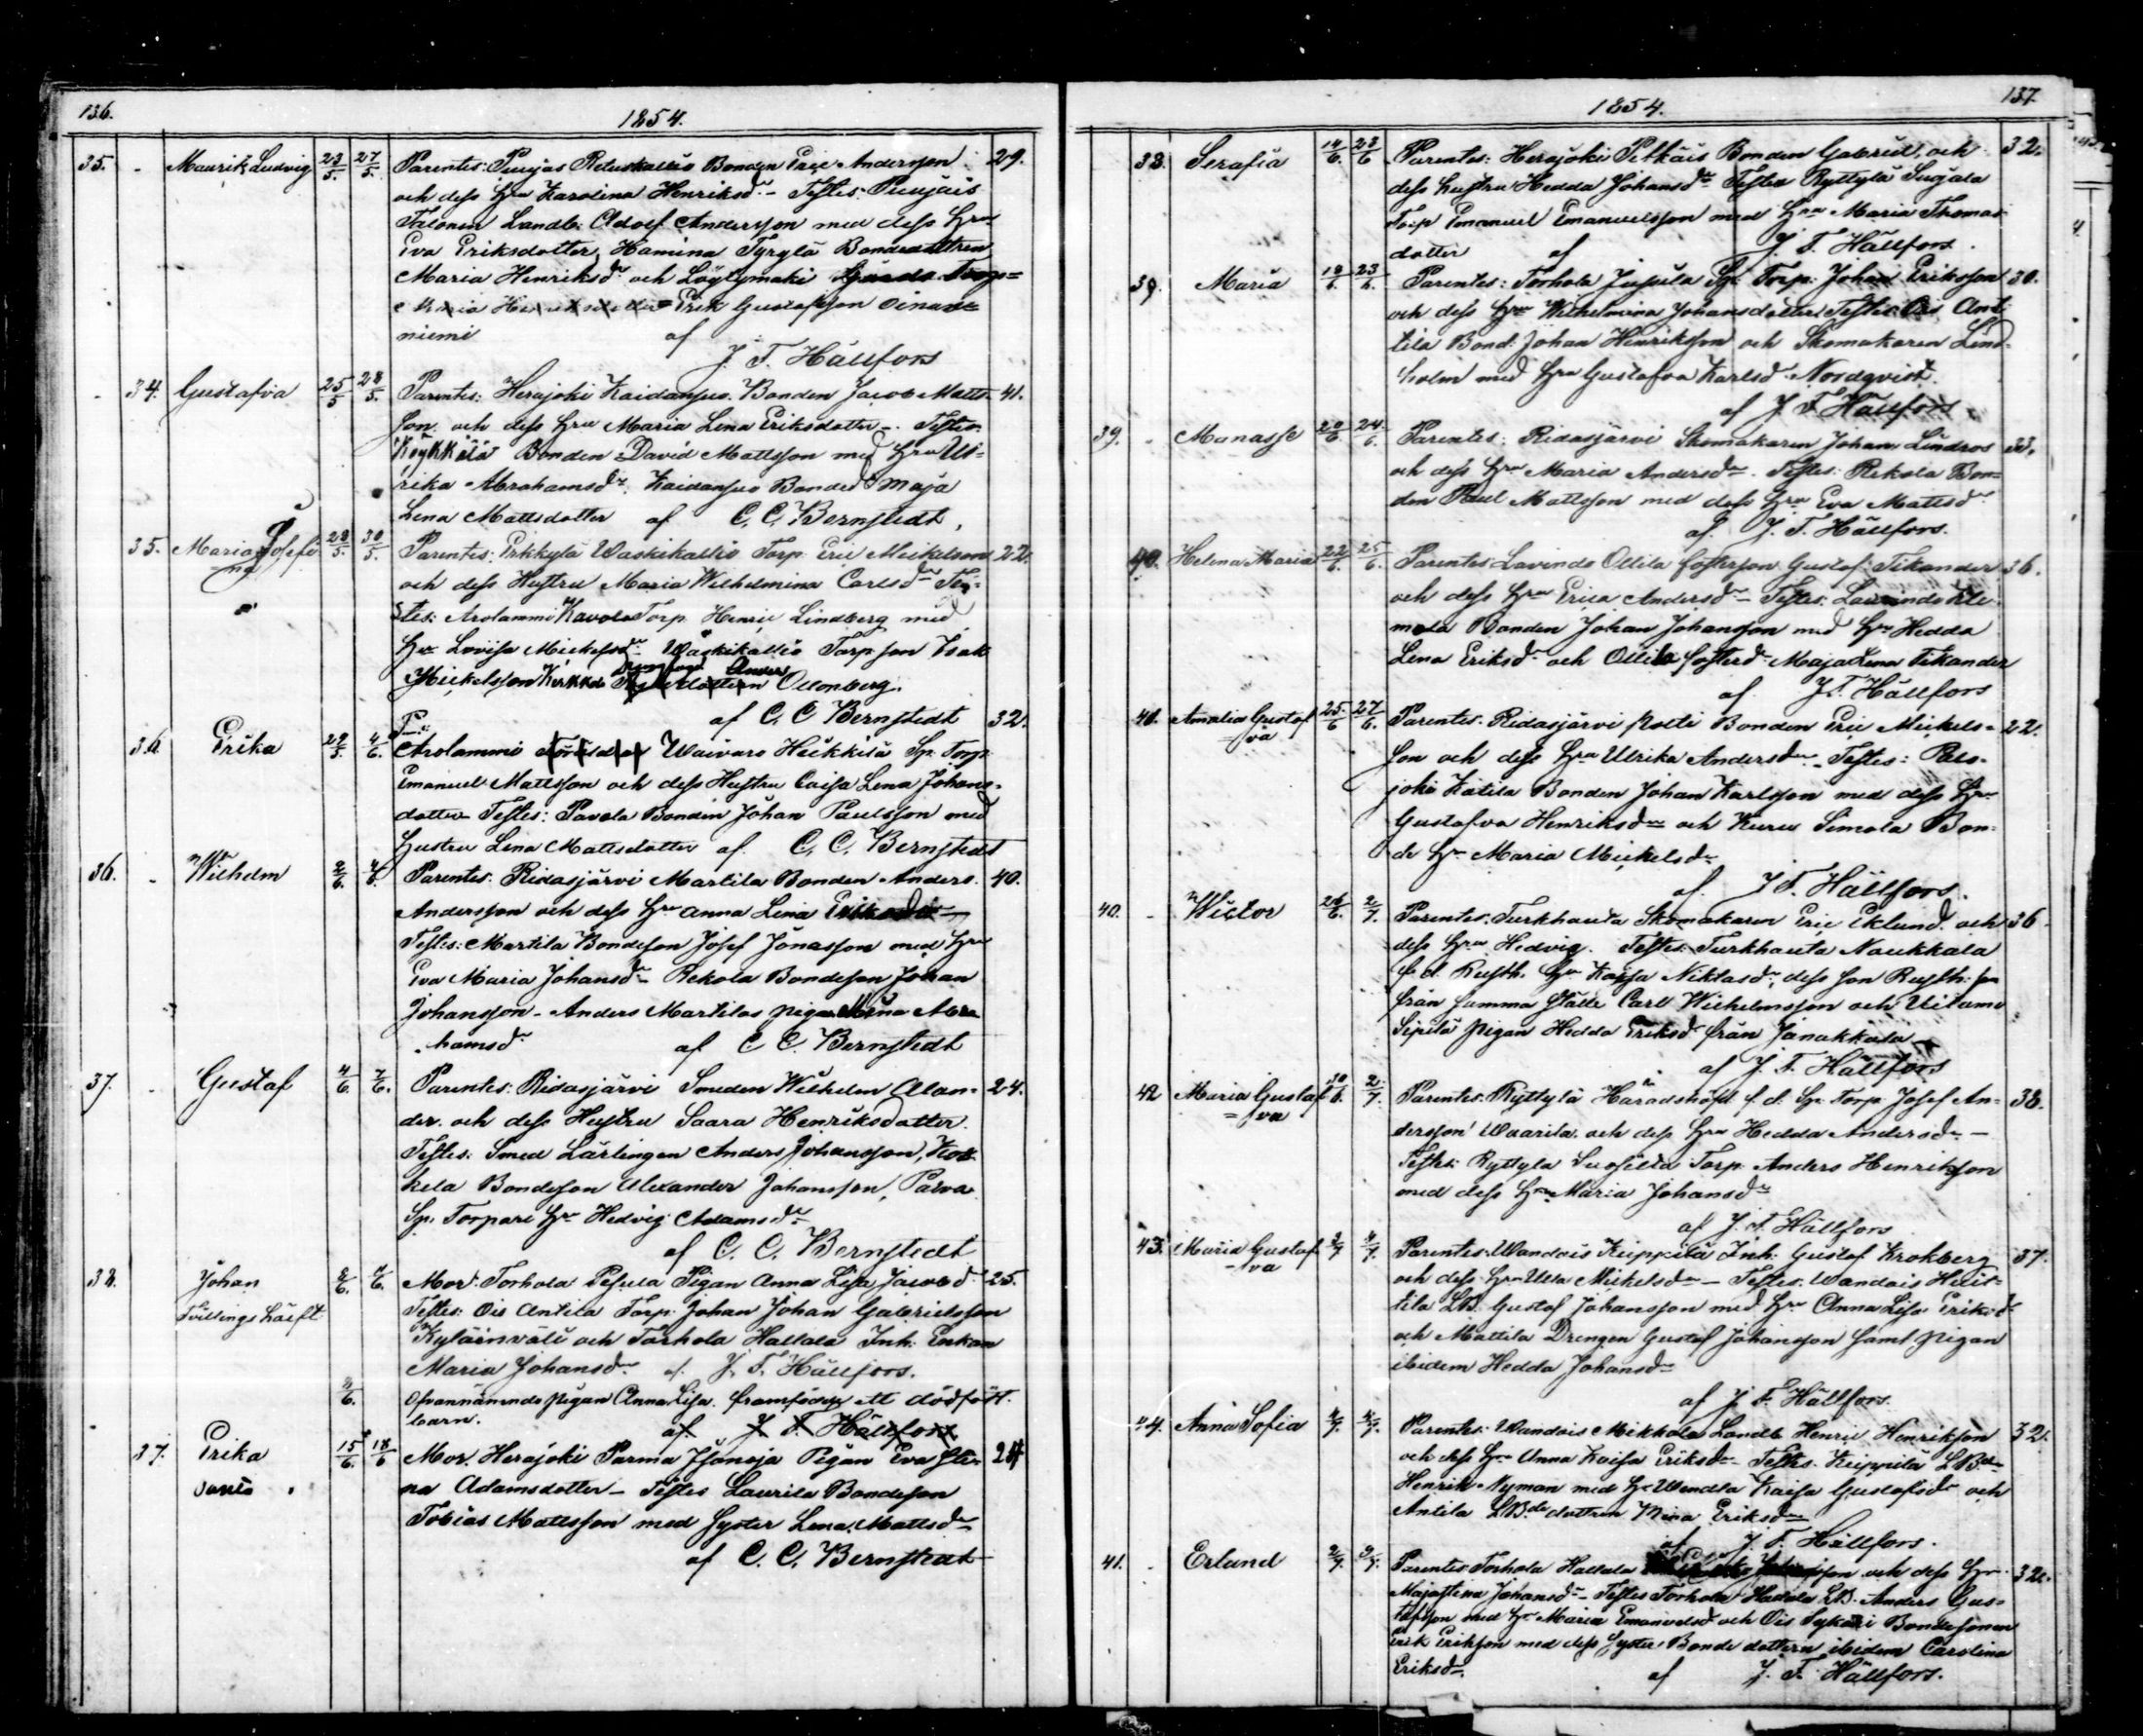 136.
1854.
35. - Maurits Ludvig 23/5. 27/5. Parentes: Puujas Retuskallio Bonden Eric Andersson 29.
och dess Hru Karolina Henriksdr - Testes: Puujais
Talonen Landb. Adolf Andersson med dess Hru
Eva Eriksdotter, Hamina Tyrylä Bondedottren
Maria Henriksdr och Löylymäki
Erik Gustafsson Oinas=
niemi af
J. F. Hällfors
34. Gustafva 25/5 28/5. Parentes: Herajoki Kaidansuo Bonden Jacob Matts- 41.
son och dess Hru Maria Lena Eriksdotter - Testes:
Köykkäis Bonden David Mattsson med Hru Ul-
rika Abrahamsdr, Kaidansuo Bonded Maja
Lena Mattsdotter af C. C. Bernstedt.
35. Maria Josefi
na 28/5. 30/5. Parentes: Erkkylä Waskikallio Torp. Eric Mickelsson 22.
och dess Hustru Maria Wilhelmina Carlsdr Tes-
tes: Arolammi Kavola Torp. Henric Lindberg med
Hr Lovisa Mickelsdr Waskikallio Torp. son Isak
Mickelsson Anders Ollonberg.
af C. C. Bernstedt 32.
36. Erika 29/5. 4/6. P:
Arolammi Waivaro Heikkilä Sp. Torp.
Emanuel Mattsson och dess Hustru Caisa Lena Johans-
dotter Testes: Pavola Bonden Johan Paulsson med
Hustru Lena Mattsdotter af C. C. Bernstedt
36. - Wilhelm 2/6. 4/6. Parentes: Ridasjärvi Martila Bonden Anders 40.
Andersson och dess Hru Anna Lena Eriksdr -
Testes: Martila Bondeson Josef Jonasson med Hru
Eva Maria Johansdr Rekola Bondeson Johan
Johansson - Anders Martilas pigan Abra
hamsdr af C. C. Bernstedt
37. - Gustaf 4/6. 7/6. Parentes: Ridasjärvi Smeden Wilhelm Alan- 24.
der. och dess Hustru Saara Henriksdotter.
Testes: Smed Lärlingen Anders Johansson, Kos
kela Bondeson Alexander Johansson, Parva
Sp. Torpare Hr Hedvig Adamsdr
af C. C. Bernstedt
38. Johan
Tvillings hälft 2/6. 4/6. Mor: Torhola Pesula Pigan Anna Lisa Jacobsd. 25.
Testes: Ois Antila Torp. Johan Johan Gabrielsson
Kyläinväli och Torhola Hallala Inh. Enkan
Maria Johansdr af J. F. Hällfors.
2/6. Ofvannämnda pigan Anna Lisa framfödde ett dödfödt
barn.
af J. F. Hällfors
37. Erika 15/6. 18/6 Mor. Herajoki Parma Isonoja Pigan Eva Sti- 24
oäkta na Adamsdotter - Testes Laurila Bondeson
Tobias Mattsson med Syster Lena Mattsdr
af C. C. Bernstedt
1854.
137.
38. Serafia 14/6. 28/6 Parentes: Herajoki Pitkäis Bonden Gabriel, och 32.
dess hustru Hedda Johansdr Testes Ryttylä Sugala
Torp Emanuel Emanuelsson med Hru Maria Thomas
dotter af J. F. Hällfors.
39. Maria 18/6. 23/6. Parentes: Torhola Jussila Sp. Torp. Johan Eriksson 30.
och dess Hru Wilhelmina Johansdotter Testes: Ois Ant-
tila Bond: Johan Henriksson och Skomakaren Lind-
holm med Hru Gustafva Karlsd. Nordqvist.
af J. F. Hällfors.
39. - Manasse 20/6. 24/6. Parentes: Ridasjärvi Skomakaren Johan Lindros 33.
och dess Hru Maria Andersdr. Testes: Rekola Bon-
den Paul Mattsson med dess Hru Eva Mattsdr
af. J. F. Hällfors.
40. Helena Maria 22/6. 25/6. Parentes Lavinda Ollila fosterson Gustaf Tikander 36.
och dess Hru Erica Andersdr - Testes:
mola Bonden Johan Johansson med Hru Hedda
Lena Eriksdr och Ollila fosterdr Maja Lena Tikander
af J. F. Hällfors
41. Amalia Gustaf
=va 25/6 27/6. Parentes. Ridasjärvi Polli Bonden Eric Mickels- 22.
son och dess Hru Ulrika Andersdr - Testes: Palo-
joki Katila Bonden Johan Karlsson med dess Hru
Gustafva Henriksdr och Kuru Simola Bon-
de Hr Maria Mickelsdr
af J. F. Hällfors.
40. - Wictor 26/6. 2/7. Parentes. Turkhauta Skomakaren Eric Eklund. och 36
dess Hru Hedvig. Testes: Turkhauta Naukkala
f. d. Rusth. Hr Kajsa Niklasdr, dess son Rusth. son
från samma ställe Carl Wilhelmsson och
Sipilä pigan Hedda Eriksd. från Janakkala
af J. F. Hällfors
42 Maria Gustaf
=va 30/6. 2/7. Parentes: Ryttylä f. d. Sp. Torp. Josef An- 38.
dersson Waarila och dess Hru Hedda Andersdr -
Testes: Ryttyla Torp. Anders Henriksson
med dess Hru Maria Johansdr
af J. F. Hällfors
43. Maria Gustaf
=va 2/7 4/7. Parentes: Wandais Keippilä Inh. Gustaf Krokberg 37.
och dess Hru Ulla Mickelsdr - Testes: Wandais Heit-
tila LB. Gustaf Johansson med Hru Anna Lisa Eriksdr
och Mattila Drengen Gustaf Johansson samt pigan
ibidem Hedda Johansdr
af J. F. Hällfors.
44. Anna Sofia 2/7. 4/7. Parentes: Wandais Mikkola Landb Henric Henriksson 32.
och dess Hru Anna Kaisa Eriksdr - Testes. Keippilä LBdn
Henrik Nyman med Hr Wendla Kaisa Gustafsdr och
Antila LBde dottren Nina Eriksdr
af J. F. Hällfors.
41. - Erland 2/7. 9/7. Parentes: Torhola Hallala och dess Hru 32.
Majastina Johansdr - Testes Torhola Hallala LB. Anders Gus-
tafsson med Hr Maria Emanuelsd och Ois Sykäri Bondesonen
Erik Eriksson med dess Syster Bonde dottern ibidem Carolina
Eriksdr. af J. F. Hällfors.